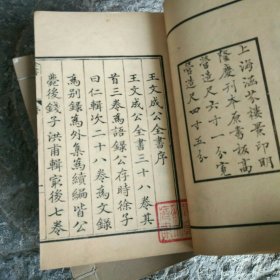 上海涵芬樓景印明
隆慶刊本原書板高
營造尺六寸一分寬
營造尺四寸五分
王文成公全書序
王文成公全書三十八卷其
首三卷為語錄公存時徐子
曰仁輯次二十八卷為文錄
為別錄為外集為續編皆公
薨後錢子洪甫輯㝡後七卷